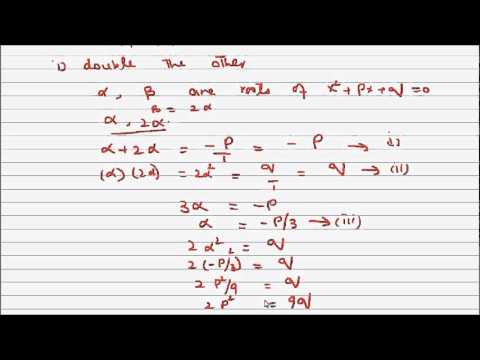 i) double the other
α, β are roots of x²+px+q=0
β = 2α
α, 2α
α+2α = -P/1 = -P → i)
(α)(2α) = 2α² = q/1 = q → (ii)
3α = -P
α = -P/3 → (iii)
2α² = q
2(-P/3)² = q
2 P²/9 = q
2P² = 9q